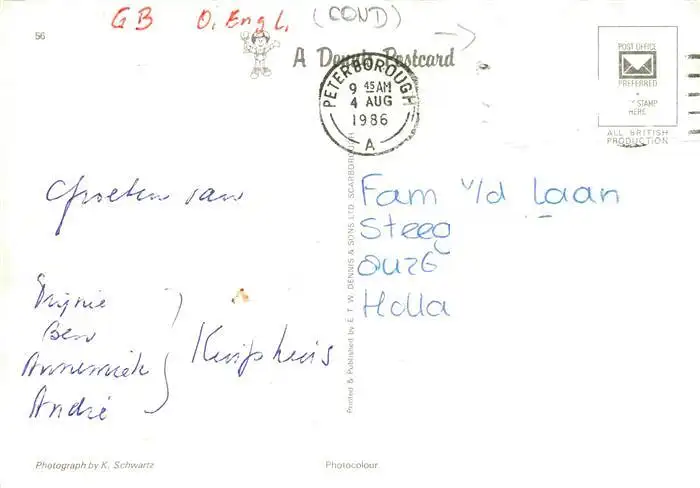 GB O. Engl. (COND)
56
A Dennis Postcard
PETERBOROUGH
9 45 AM
4 AUG
1986
A
POST OFFICE
PREFERRED
STAMP
HERE
ALL BRITISH
PRODUCTION
Groeten van
Fam v/d Laan
Steeg
Holla
Ben
Annemiek
André
Kuipheuis
Printed & Published by E. T. W. DENNIS & SONS LTD. SCARBOROUGH
Photograph by K. Schwartz
Photocolour.